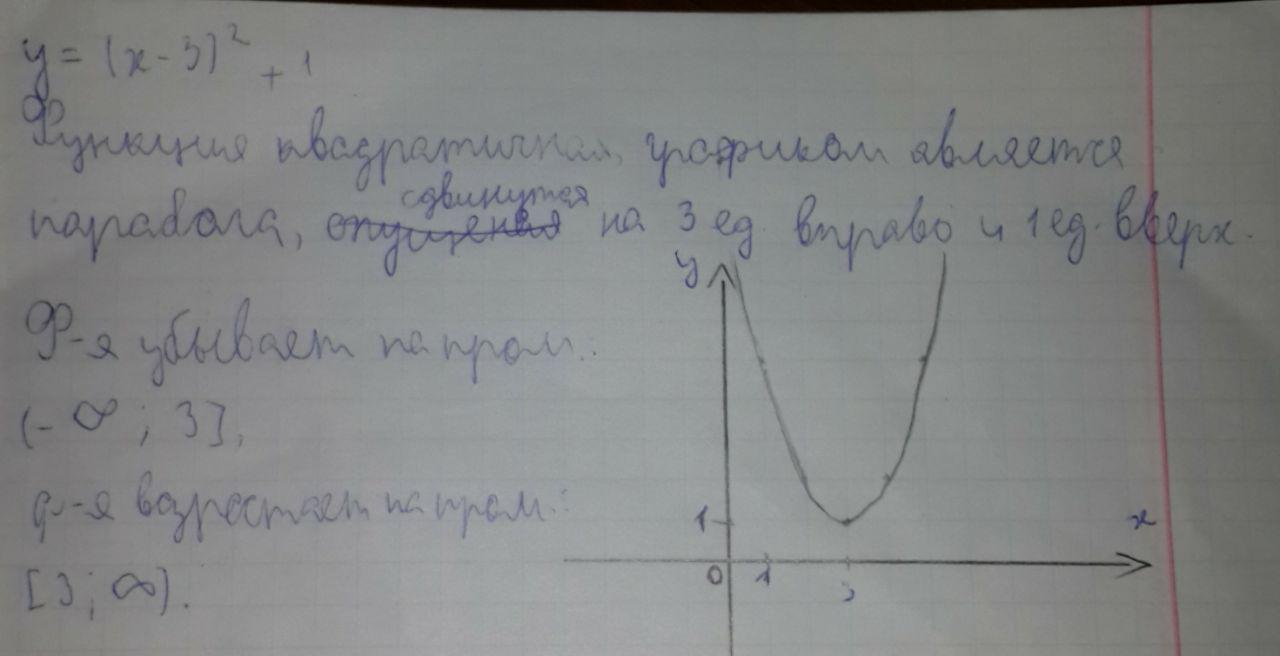 y = (x - 3)² + 1
Функция квадратичная, графиком является
парабола, сдвинутая на 3 ед. вправо и 1 ед. вверх.
Ф-я убывает на пром.:
(- ∞ ; 3],
ф-я возростает на пром.:
[3; ∞).
y
1
x
0 1 3